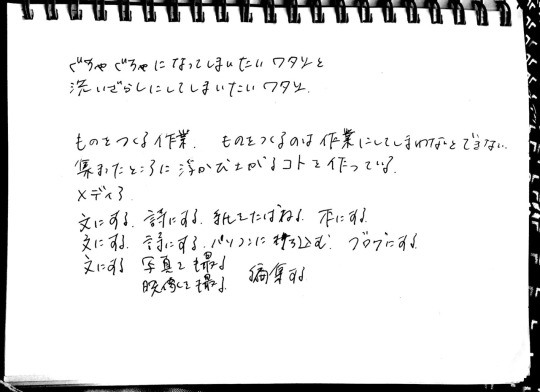 ぐちゃぐちゃになってしまいたいワタシと
洗いざらしにしてしまいたいワタシ.
ものをつくる作業. ものをつくるのは作業にしてしまわないとできない.
集まったところに浮かび上がるコトを作っている.
メディア
文にする. 詩にする. 紙をたばねる. 本にする.
文にする. 詩にする. パソコンに打ち込む. ブログにする.
文にする 写真を撮る
映像を撮る. 編集する